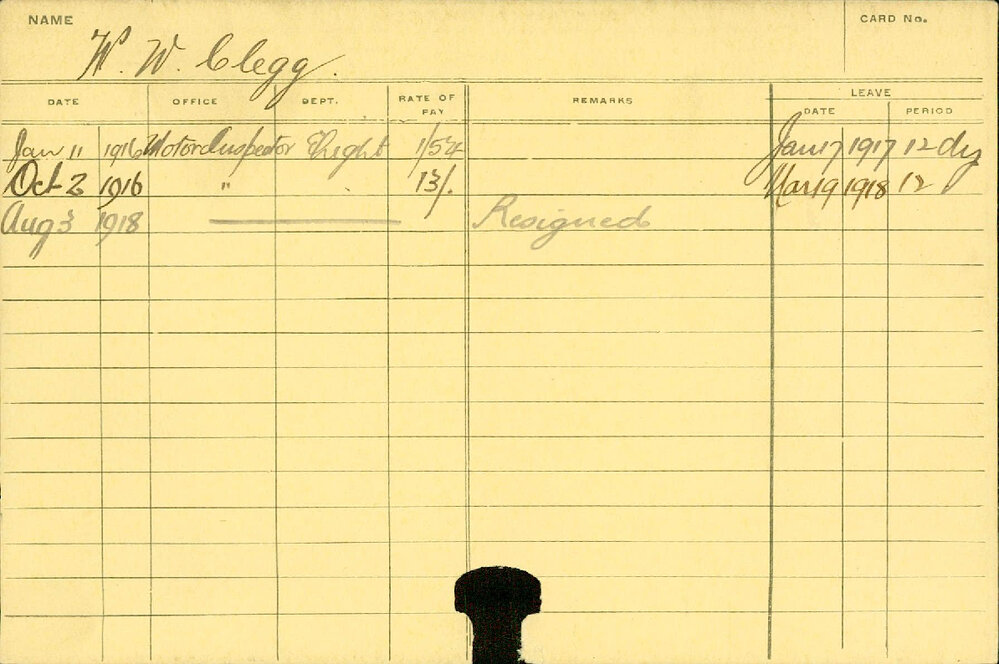 NAME
W. W. Clegg.
CARD No.
DATE OFFICE DEPT. RATE OF PAY REMARKS LEAVE DATE PERIOD
Jan 11 1916 Motor Inspector Jan 17 1917 12 dys
Oct 2 1916 " 13/. Mar 19 1918 12
Aug 3 1918 Resigned